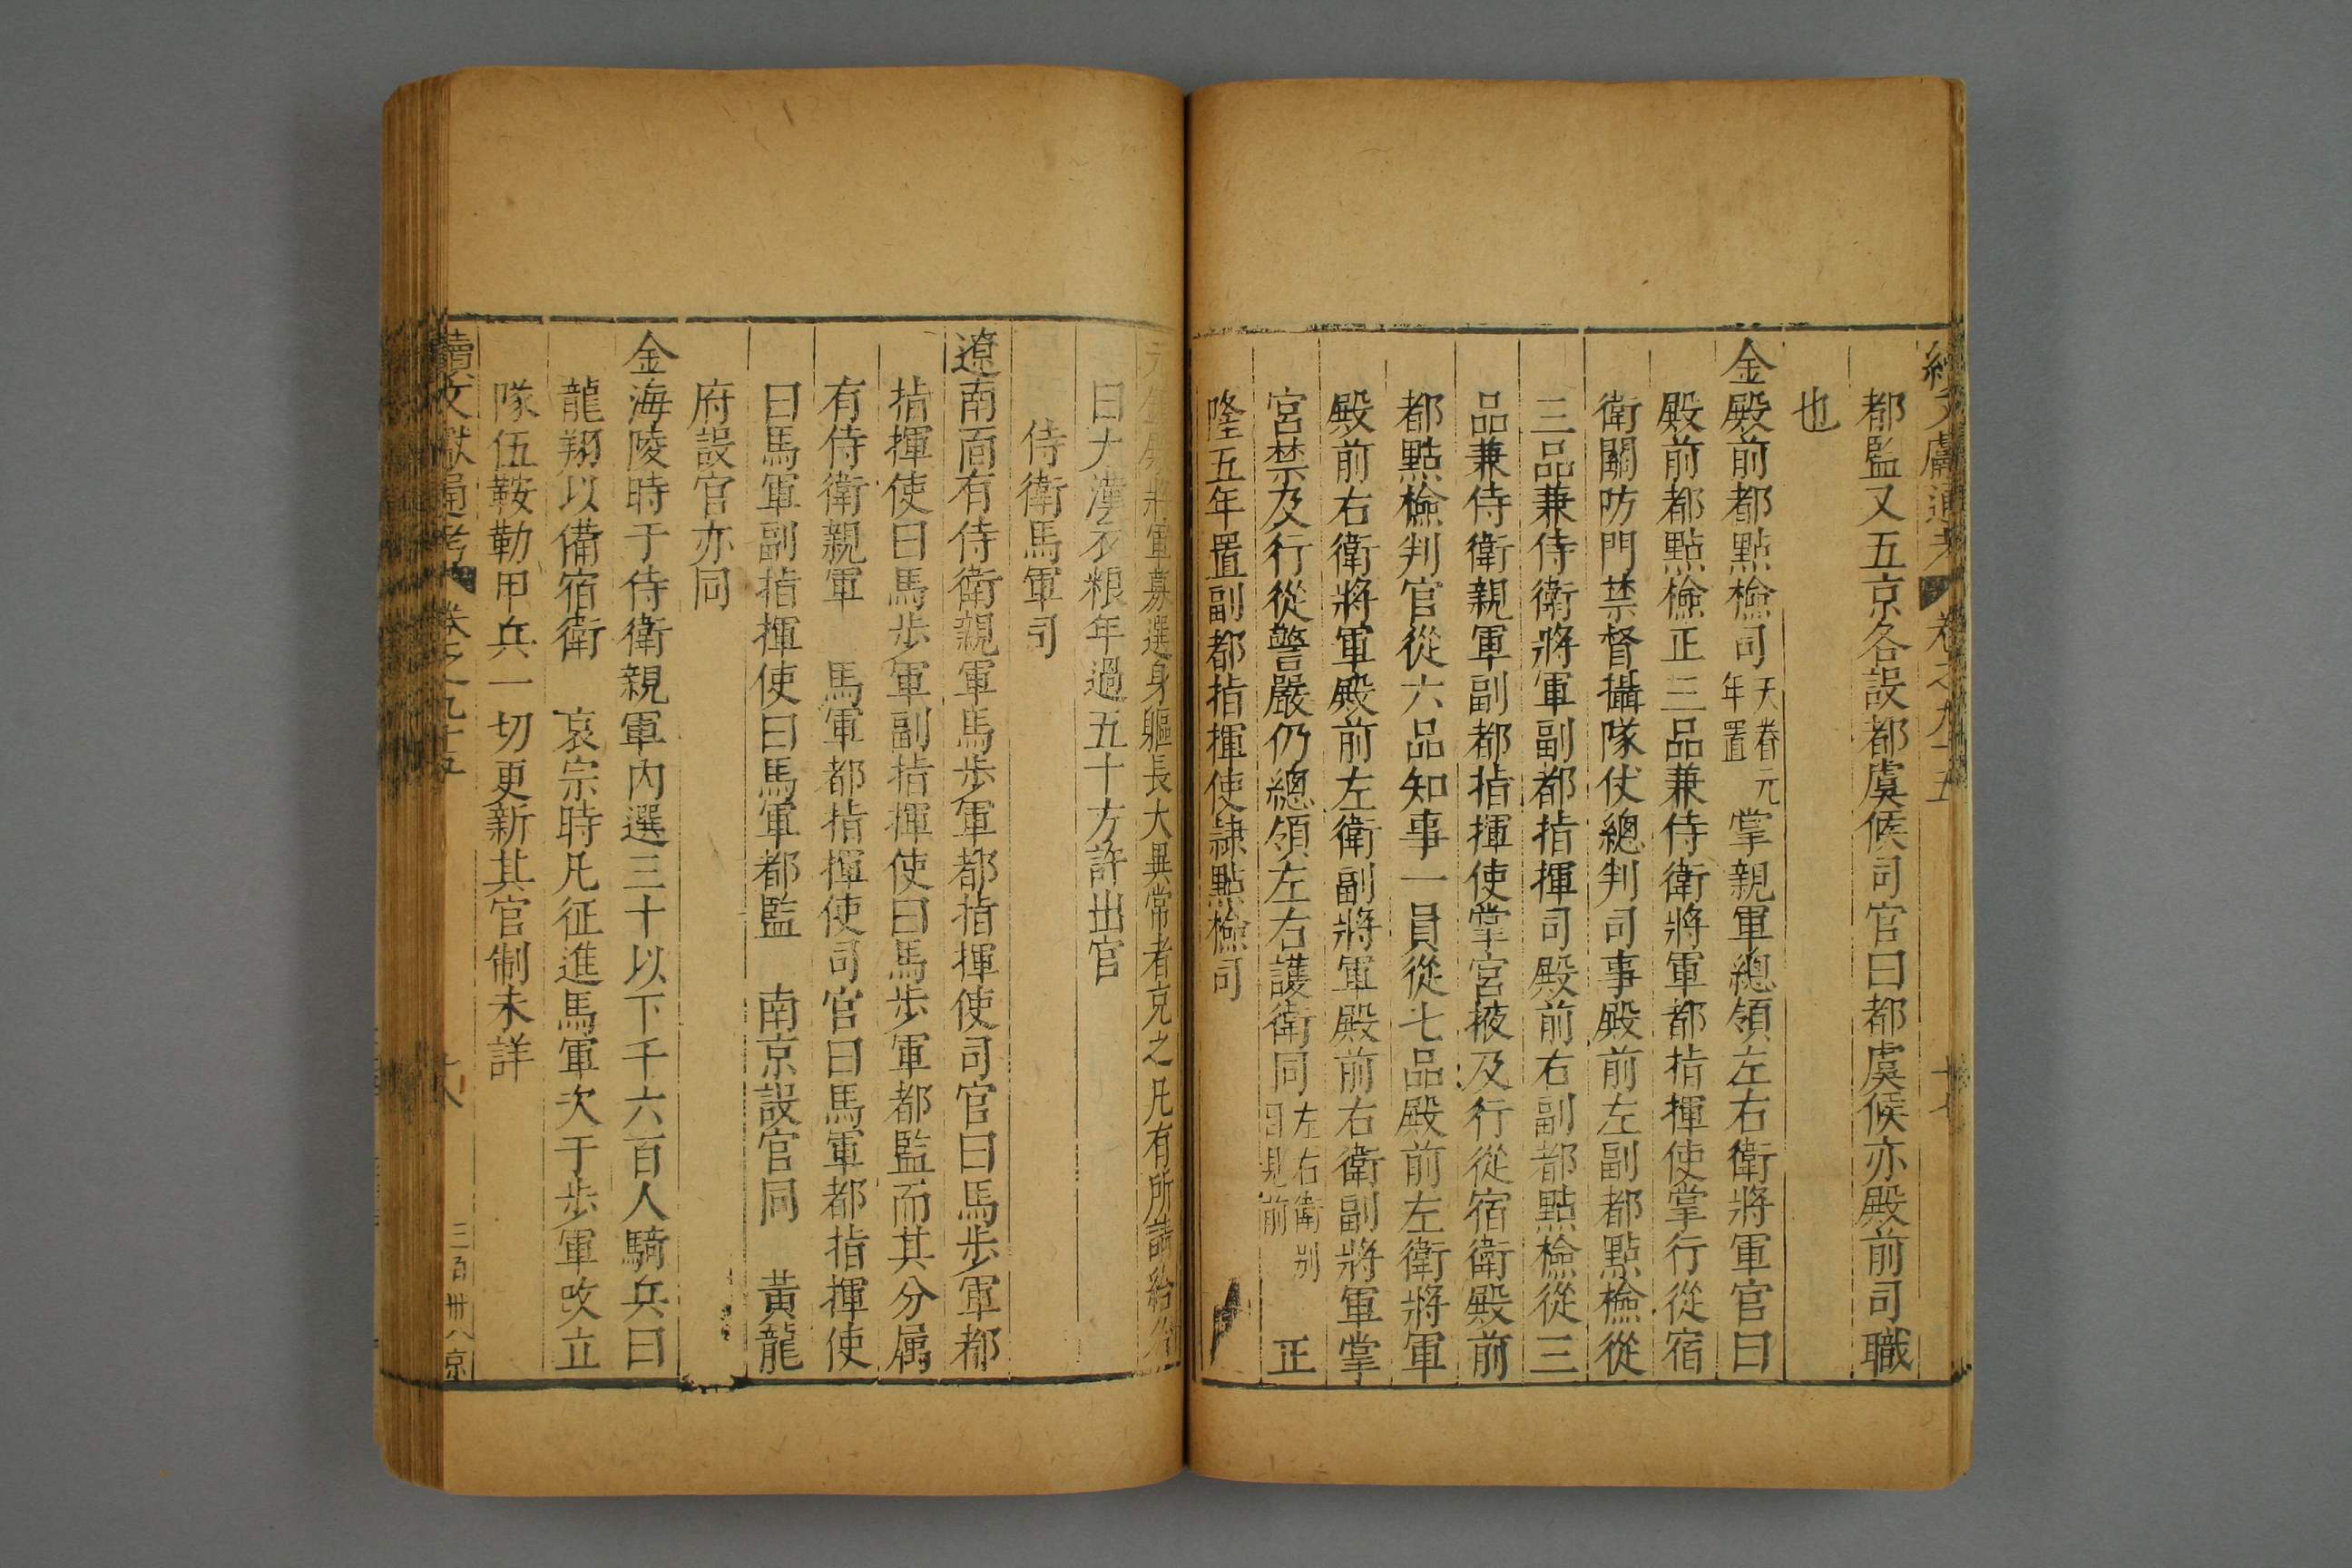 續文獻通考 卷之九十五 十七
都監又五京各設都虞候司官曰都虞候亦殿前司職
也
金殿前都點檢司天眷元年置掌親軍總領左右衛將軍官曰
殿前都點檢正三品兼侍衛將軍都指揮使掌行從宿
衛關防門禁督攝隊仗總判司事殿前左副都點檢從
三品兼侍衛將軍副都指揮司殿前右副都點檢從三
品兼侍衛親軍副都指揮使掌宮掖及行從宿衛殿前
都點檢判官從六品知事一員從七品殿前左衛將軍
殿前右衛將軍殿前左衛副將軍殿前右衛副將軍掌
宮禁及行從警嚴仍總領左右護衛同左右衛別見前 正
隆五年置副都指揮使隷點檢司
將軍募選身軀長大異常者充之凡有所請給
曰大漢衣粮年過五十方許出官
侍衛馬軍司
遼南面有侍衛親軍馬步軍都指揮使司官曰馬步軍都
指揮使曰馬步軍副指揮使曰馬步軍都監而其分属
有侍衛親軍 馬軍都指揮使司官曰馬軍都指揮使
曰馬軍副指揮使曰馬軍都監 南京設官同 黃龍
府設官亦同
金海陵時于侍衛親軍內選三十以下千六百人騎兵曰
龍翔以備宿衛 哀宗時凡征進馬軍次于步軍改立
隊伍鞍勒甲兵一切更新其官制未詳
續文獻通考 卷之九十五 十八 三百卅八京